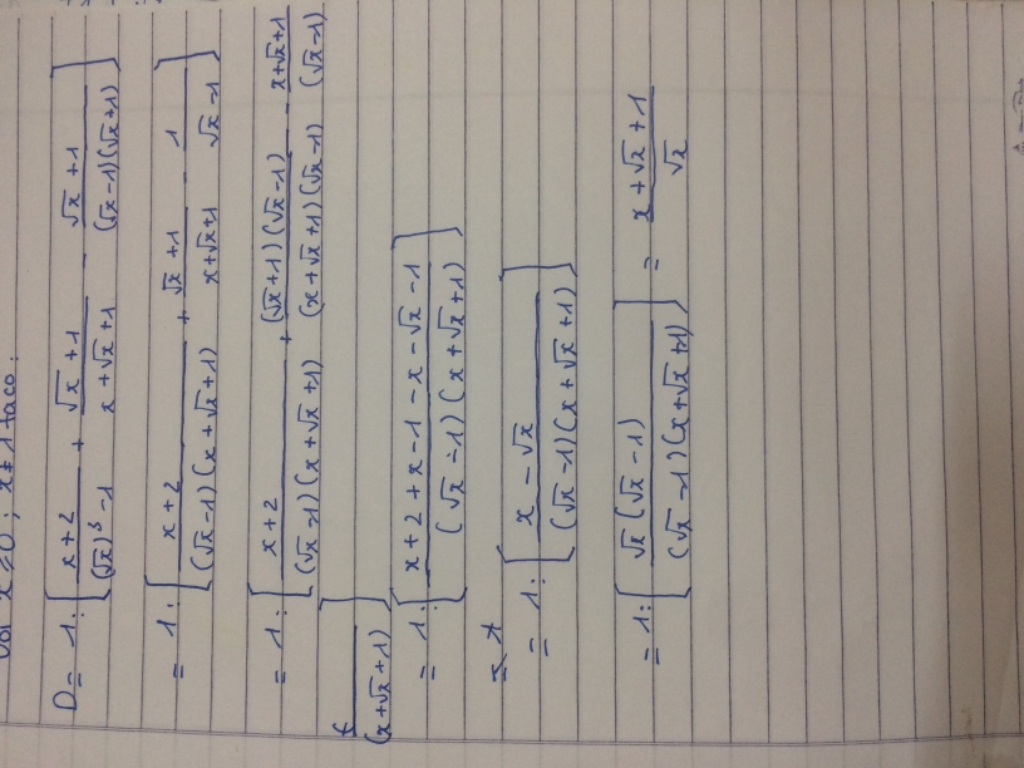 x ≥ 0 ; x ≠ 1 ta có :
D = 1 : [ (x+2)/((√x)³ - 1) + (√x + 1)/(x + √x + 1) - (√x + 1)/((√x - 1)(√x + 1)) ]
= 1 : [ (x+2)/((√x-1)(x+√x+1)) + (√x + 1)/(x+√x+1) - 1/(√x - 1) ]
= 1 : [ (x+2)/((√x-1)(x+√x+1)) + ((√x+1)(√x-1))/((x+√x+1)(√x-1)) - (x+√x+1)/((√x-1)
(x+√x+1)) ]
= 1 : [ (x+2+x-1-x-√x-1)/((√x-1)(x+√x+1)) ]
= 1 : [ (x-√x)/((√x-1)(x+√x+1)) ]
= 1 : [ (√x(√x-1))/((√x-1)(x+√x+1)) ] = (x+√x+1)/√x